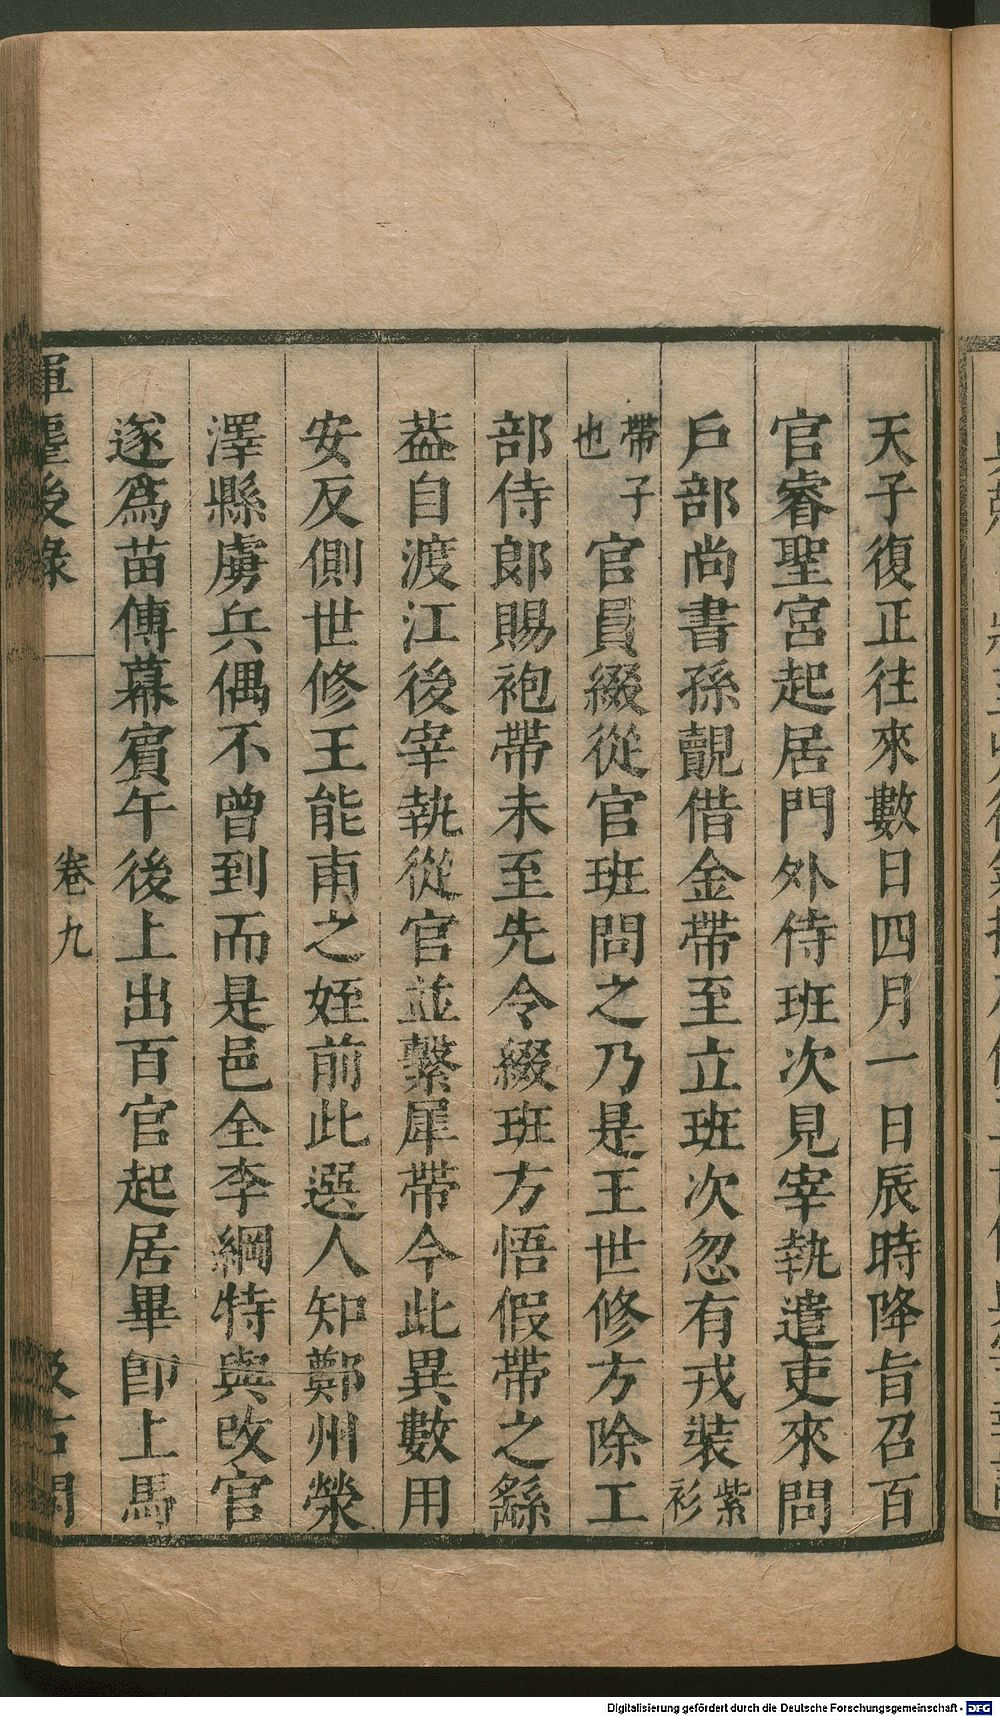 天子復正往來數日四月一日辰時降旨召百
官睿聖宮起居門外侍班次見宰執遣吏來問
戶部尚書孫覿借金帶至立班次忽有戎裝紫衫
帶子也官員綴從官班問之乃是王世修方除工
部侍郎賜袍帶未至先令綴班方悟假帶之繇
葢自渡江後宰執從官並繫犀帶今此異數用
安反側世修王能甫之姪前此選人知鄭州滎
澤縣虜兵偶不曾到而是邑全李綱特與改官
遂為苗傅幕賓午後上出百官起居畢即上馬
後錄 卷九
Digitalisierung gefördert durch die Deutsche Forschungsgemeinschaft - DFG